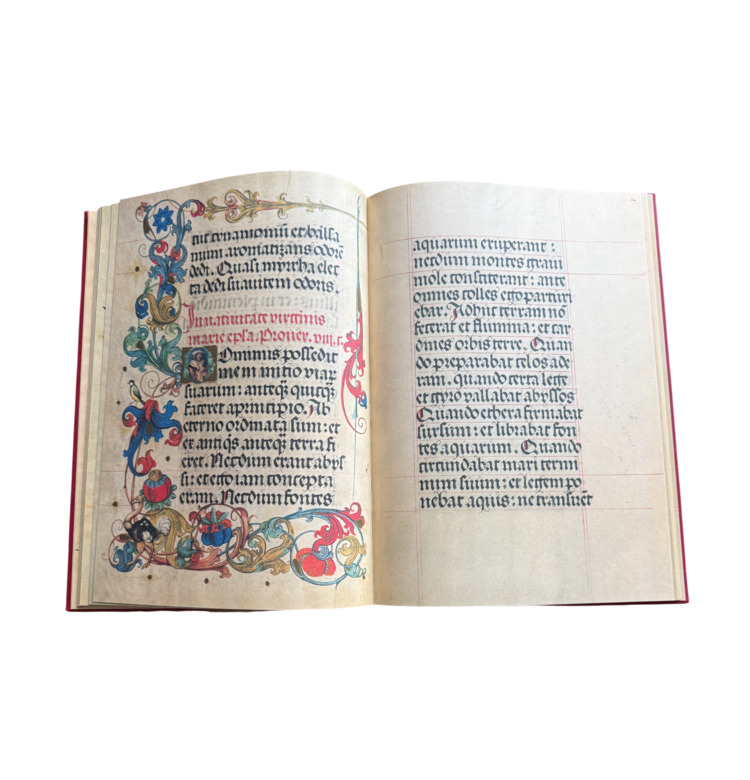 cut cinamomū et balsa
mum aromatizans odorē
dedi. Quasi myrrha elec
ta dedi suavitem odoris.
In nativitate virginis
marie epl̄a. Prover. viii. c.
Dominus possedit
me in initio viaꝝ
suarum: anteq̄ quicq̄
faceret a principio. Ab
eterno ordinata sum: et
ex antiq̄s anteq̄ terra fi
eret. Necdum erant abys
si: et ego iam concepta
eram. Necdum fontes
aquarum eruperant:
necdum montes gravi
mole constiterant: ante
omnes colles ego parturi
ebar. Adhuc terram nō
fecerat et flumina: et car
dines orbis terre. Quan
do preparabat celos ade
ram. quando certa lege
et gyro vallabat abyssos
Quando ethera firmabat
sursum: et librabat fon
tes aquarum. Quando
circundabat mari termi
num suum: et legem po
nebat aquis: ne transirēt